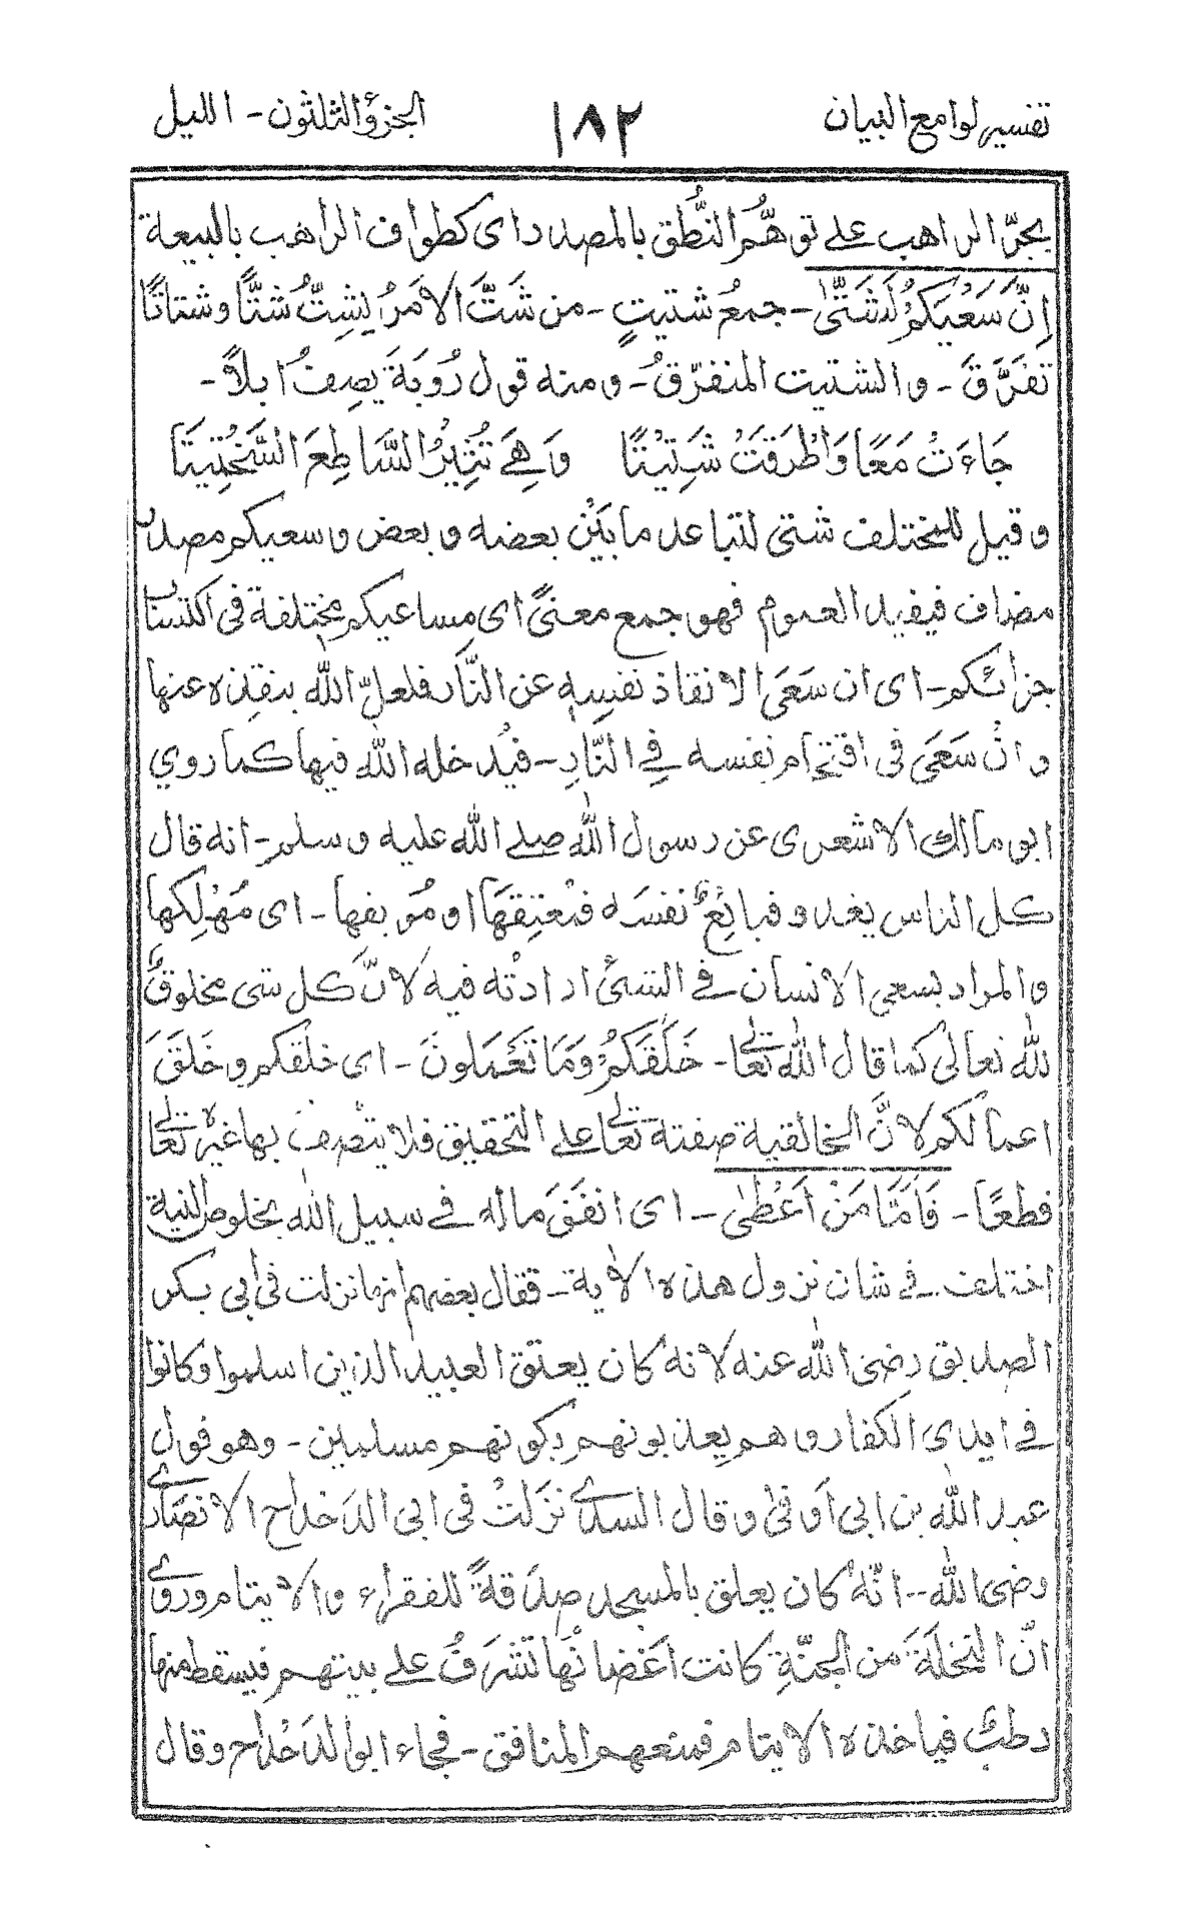 تفسير لوامع البيان ١٨٢ الجزؤ الثلثون - الليل
يجرّ الراهب على توهُّم النُّطق بالمصدر اى كطواف الراهب بالبيعة
اِنَّ سَعْيَكُمْ لَشَتّٰى - جمعُ شتيتٍ - من شَتَّ الامرُ يشِتُّ شتًّا وشتاتًا
تفرَّقَ - والشتيت المتفرّقُ - ومنه قول رُوبَةَ يصِفُ ابلاً -
جَاءَتْ مَعًا وَاطْرَقَتْ شَتِيْتًا وَهِيَ تُثِيْرُ السَّاطِعَ السَّخْتِيتَا
وقيل للمختلف شتى لتباعد ما بَيْن بعضه وبعض وسعيكم مصدر
مضاف فيفيد العموم فهو جمع معنىً اى مساعيكم مختلفة فى اكتساب
جزائكم - اى ان سَعَى الانقاذ نفسِهِ عن النَّار فلعلّ الله ينقذه عنها
وانْ سَعَى فى اقتحام نفسه فى النَّارِ - فيُدخله الله فيها كما روي
ابو مالك الاشعرى عن رسول الله صلى الله عليه وسلم - انه قال
كل الناس يغدو فبائِعٌ نفسَه فمُعْتِقهَا او مُوبقها - اى مُهْلِكها
والمراد بسعى الانسان فى الشئ ارادتْه فيه لانَّ كل شى مخلوقٌ
لله تعالى كما قال الله تعالى - خَلَقَكُمْ وَمَا تَعْمَلونَ - اى خلقكم وخلقَ
اعمالكم لانَّ الخالقية صفته تعالى على التحقيق فلا يتصف بها غيره تعالى
قطعًا - فَاَمَّا مَنْ اَعْطٰى - اى انفَقَ ماله فى سبيل الله بخلوص النية
اختلف فى شان نزول هذه الاية - فقال بعضهم انها نزلت فى ابى بكر
الصديق رضى الله عنه لانه كان يعتق العبيد الذين اسلموا وكانوا
فى ايدى الكفار وهم يعذبونهم بكونهم مسلمين - وهو قول
عبد الله بن ابى اوفى وقال السدى نزلتْ فى ابى الدحداح الانصارى
رضى الله - انّهُ كان يعلق بالمسجد صدقةً للفقراء والايتام وروى
انّ النخلةَ من الجنّةِ كانت اغصانُها تشرفُ على بيتهم فيسقط منها
رطبٌ فياخذه الايتام فمنعهم المنافق - فجاء ابو الدحْداح وقال